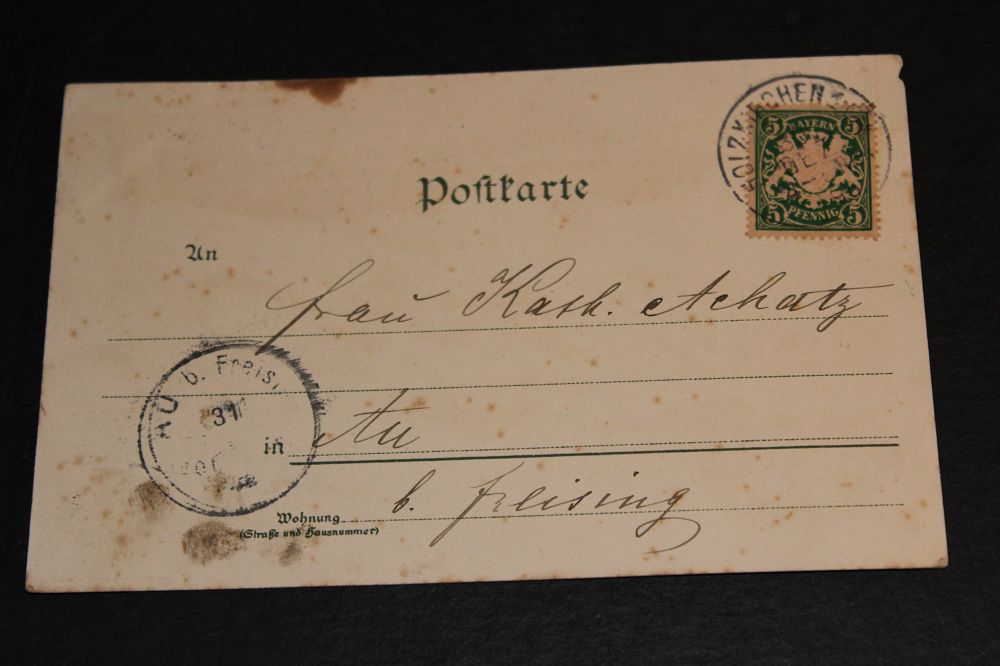 HOLZKIRCHEN
5 BAYERN 5
5 PFENNIG 5
Poſtkarte
An
Frau Kath. Achatz
AU b. Freis.
31
in Au
b. Freising
Wohnung
(Straße und Hausnummer)